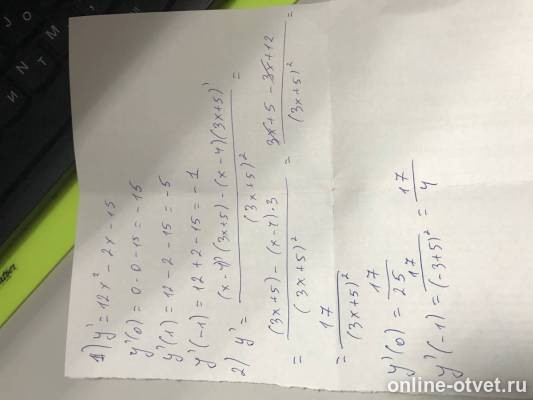 1) y' = 12x² - 2x - 15
y'(0) = 0 - 0 - 15 = -15
y'(1) = 12 - 2 - 15 = -5
y'(-1) = 12 + 2 - 15 = -1
2) y' = ((x-4)'(3x+5) - (x-4)(3x+5)')/(3x+5)² =
= ((3x+5) - (x-4)·3)/(3x+5)² = (3x+5-3x+12)/(3x+5)² =
= 17/(3x+5)²
y'(0) = 17/25
y'(-1) = 17/(-3+5)² = 17/4
online-otvet.ru